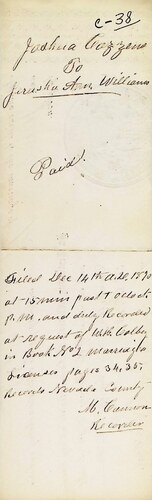 C-38
Joshua Cozzens
To
Jerusha Ann Williams
Paid.
Filed Dec 14th A.D. 1870
at 15 mins past 1 oclock
P.M. and duly Recorded
at request of
in Book No 2 marriage
Licenses pages 34, 35,
Records Nevada County
M. Cannon
Recorder